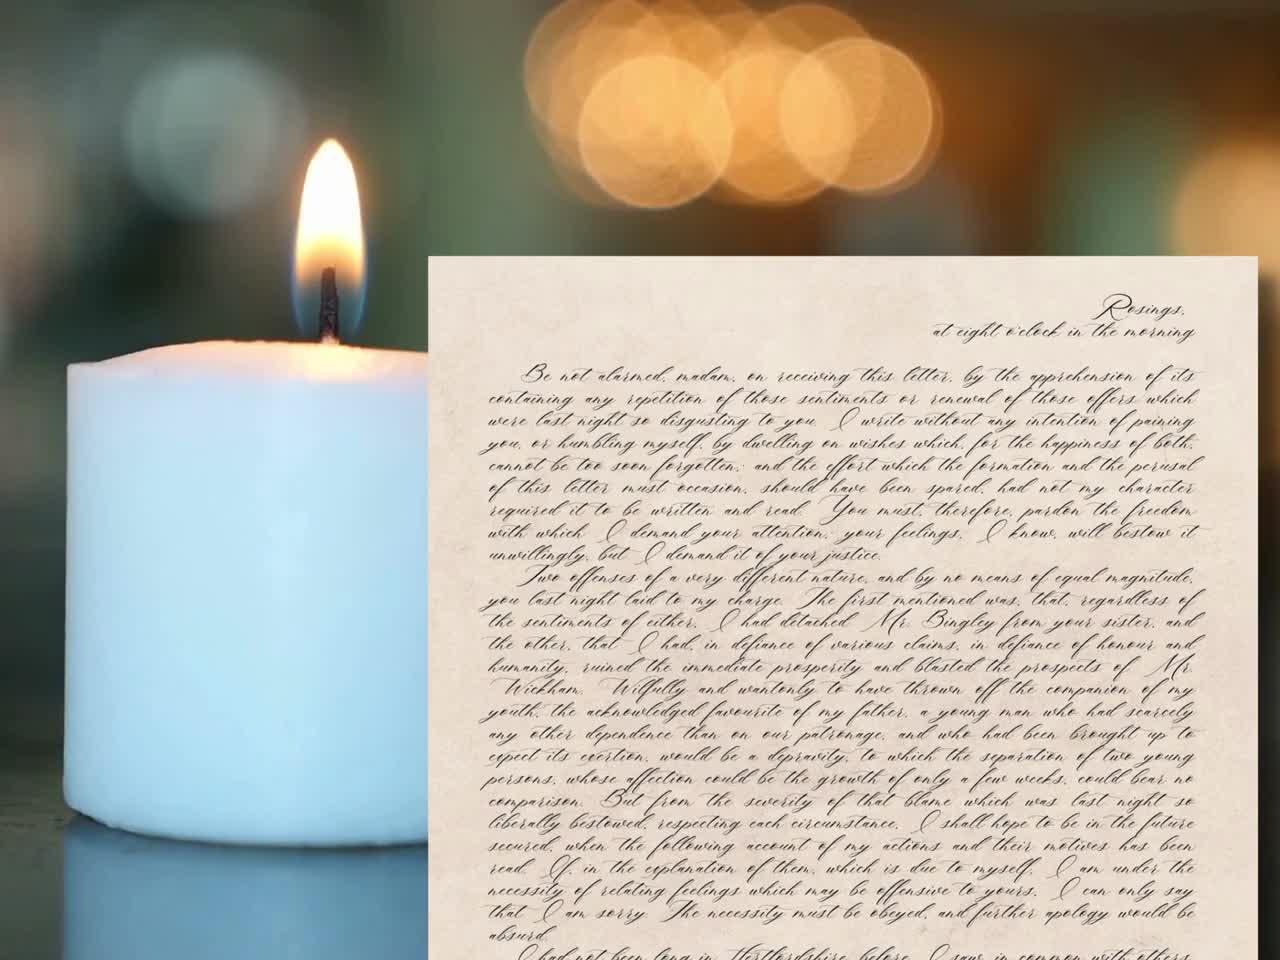 Rosings,
at eight o'clock in the morning
Be not alarmed, madam, on receiving this letter, by the apprehension of its
containing any repetition of those sentiments or renewal of those offers which
were last night so disgusting to you. I write without any intention of paining
you, or humbling myself, by dwelling on wishes which, for the happiness of both,
cannot be too soon forgotten; and the effort which the formation and the perusal
of this letter must occasion, should have been spared, had not my character
required it to be written and read. You must, therefore, pardon the freedom
with which I demand your attention; your feelings, I know, will bestow it
unwillingly, but I demand it of your justice.
Two offenses of a very different nature, and by no means of equal magnitude,
you last night laid to my charge. The first mentioned was, that, regardless of
the sentiments of either, I had detached Mr. Bingley from your sister, and
the other, that I had, in defiance of various claims, in defiance of honour and
humanity, ruined the immediate prosperity and blasted the prospects of Mr.
Wickham. Wilfully and wantonly to have thrown off the companion of my
youth, the acknowledged favourite of my father, a young man who had scarcely
any other dependence than on our patronage, and who had been brought up to
expect its exertion, would be a depravity, to which the separation of two young
persons, whose affection could be the growth of only a few weeks, could bear no
comparison. But from the severity of that blame which was last night so
liberally bestowed, respecting each circumstance, I shall hope to be in the future
secured, when the following account of my actions and their motives has been
read. If, in the explanation of them, which is due to myself, I am under the
necessity of relating feelings which may be offensive to yours, I can only say
that I am sorry. The necessity must be obeyed, and further apology would be
absurd.
I had not been long in Hertfordshire, before I saw, in common with others,